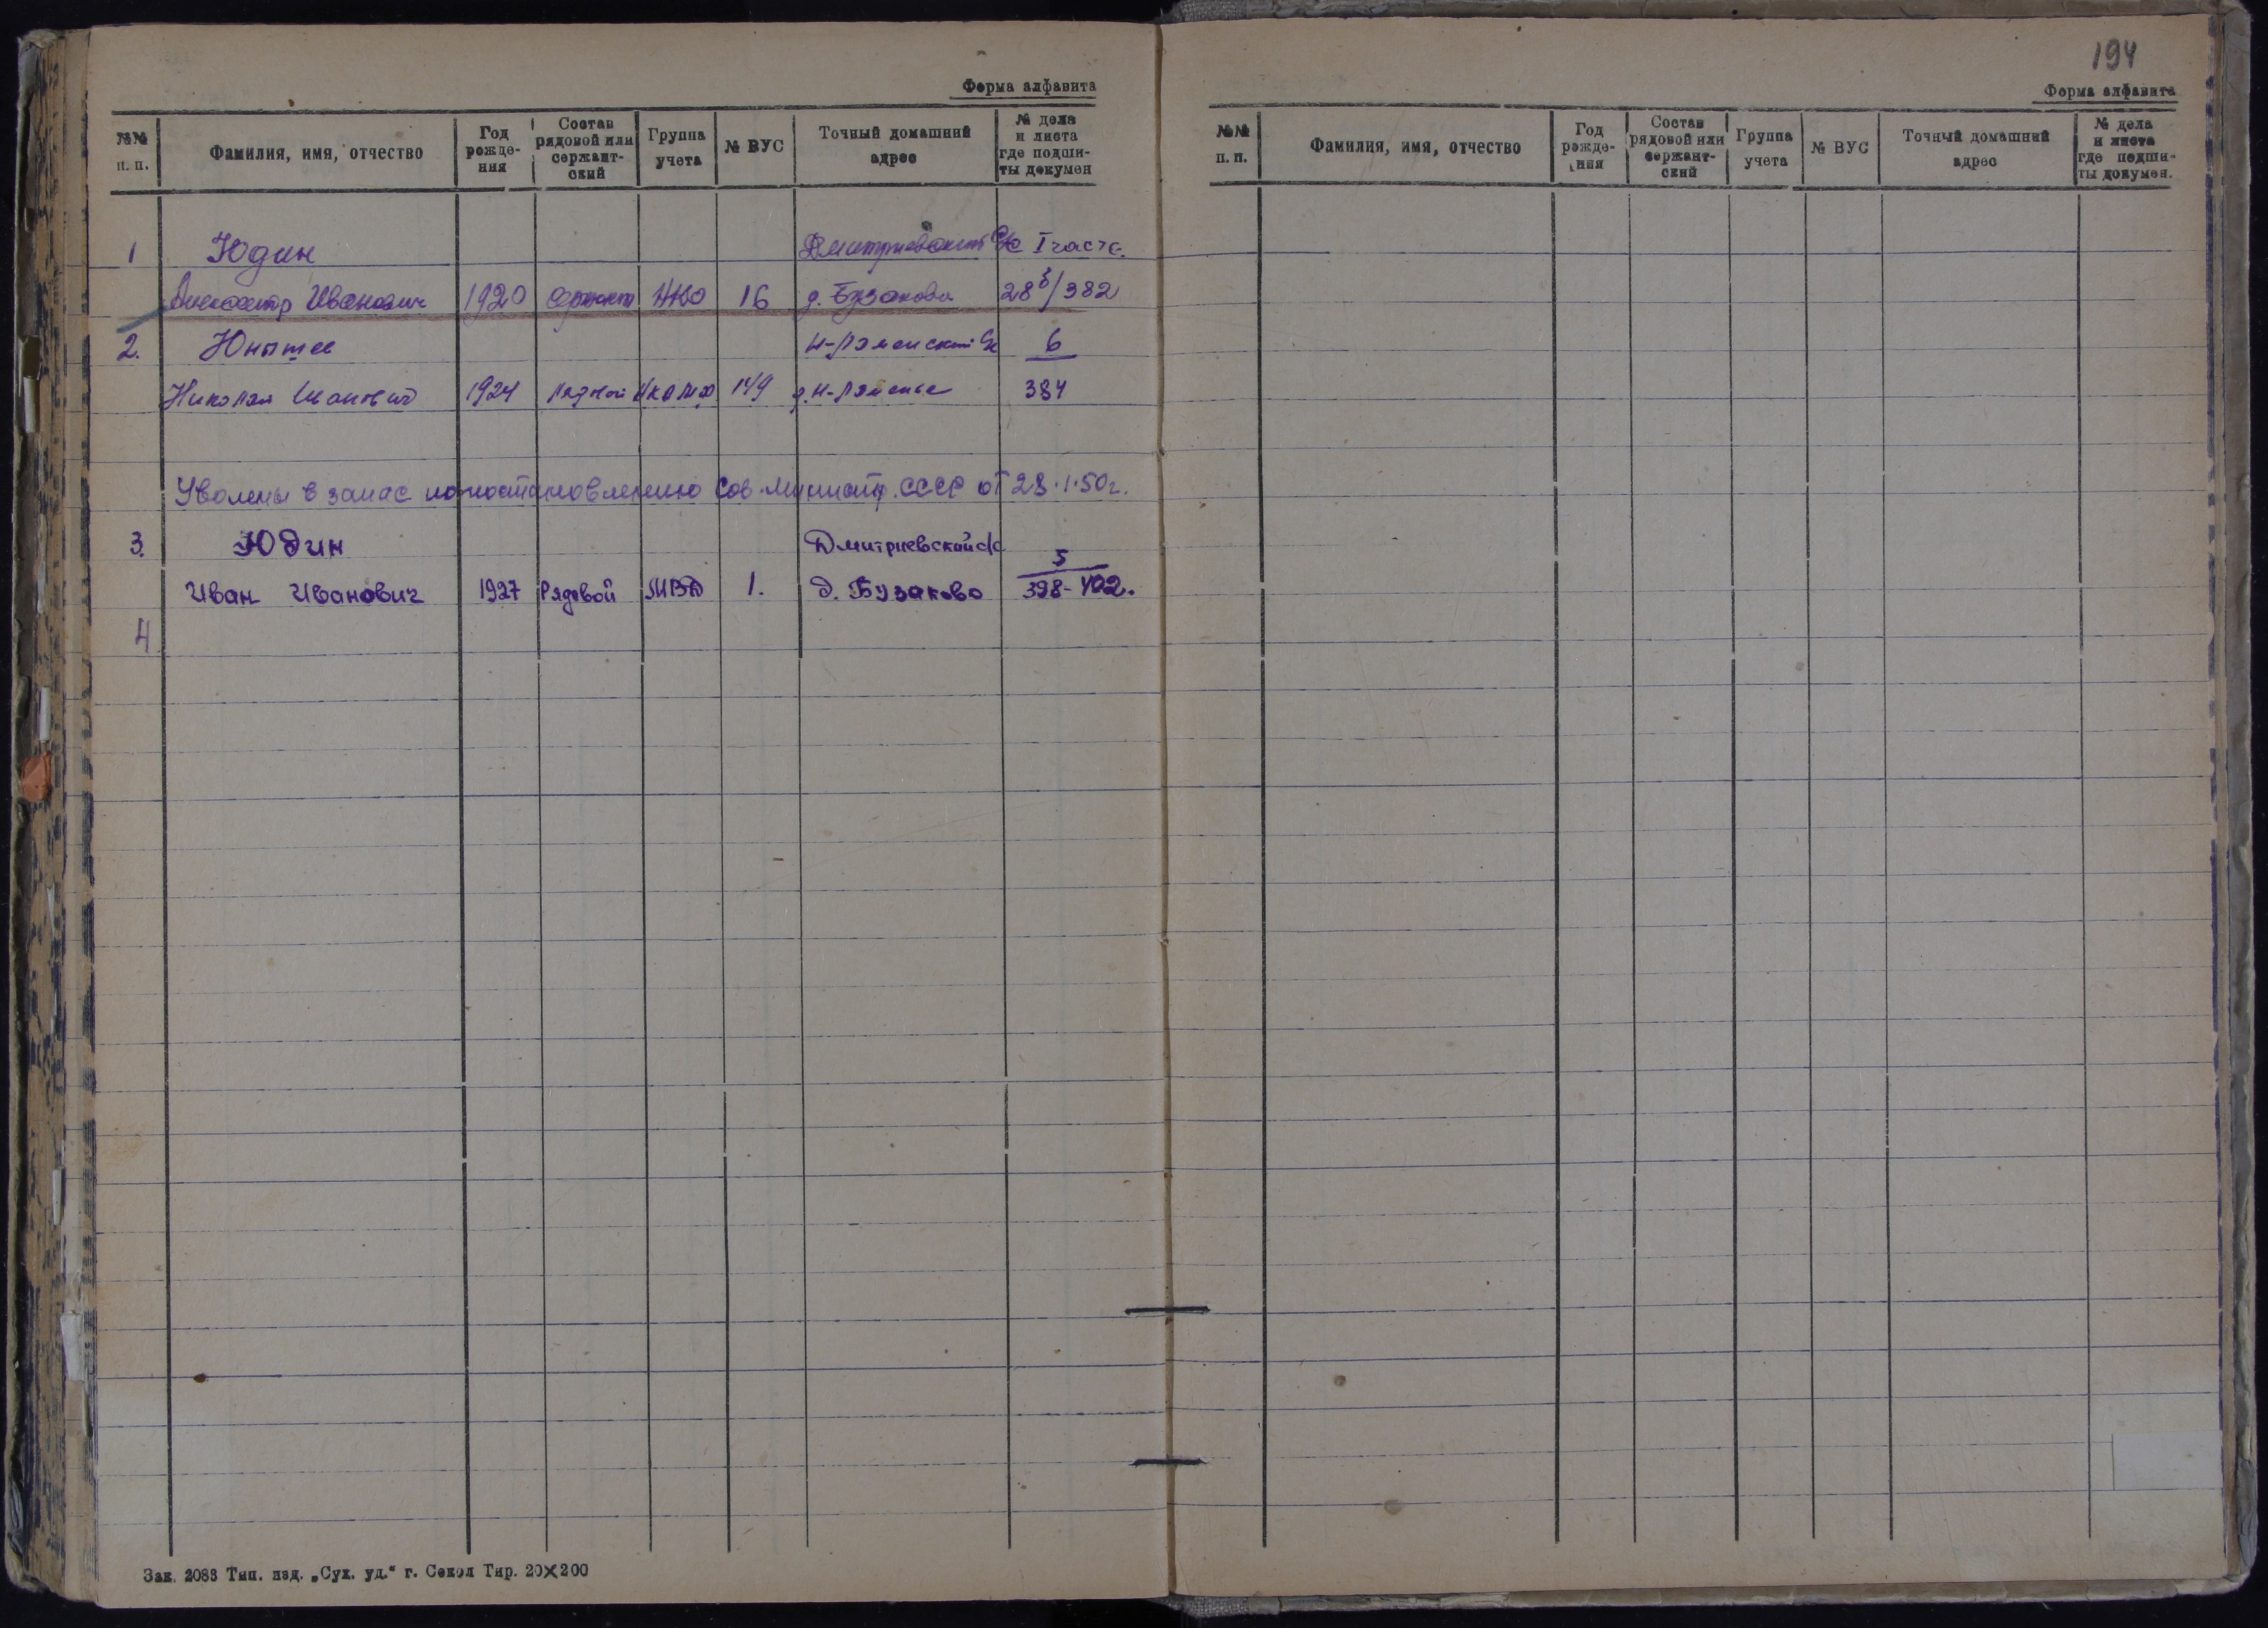 Форма алфавита
№№ п. п.
Фамилия, имя, отчество
Год рожде-ния
Состав рядовой или сержант-ский
Группа учета
№ ВУС
Точный домашний адрес
№ дела и листа где подши-ты докумен
1 Юдин Дмитриевский с/с I часть
Александр Иванович 1920 16 д. Бузаково 28 /382
2. Н-Раменский с/с 6
Николай Иванович 1924 Рядовой 149 д. Н-Раменье 384
Уволены в запас по постановлению Сов. Министр. СССР от 28.1.50г.
3. Юдин Дмитриевский с/с 5
Иван Иванович 1927 Рядовой МВД 1. д. Бузаково 398-402.
4
Зак. 2083 Тип. изд. „Сух. уд.“ г. Сокол Тир. 20×200
194
Форма алфавита
№№ п. п.
Фамилия, имя, отчество
Год рожде-ния
Состав рядовой или сержант-ский
Группа учета
№ ВУС
Точный домашний адрес
№ дела и листа где подши-ты докумен.